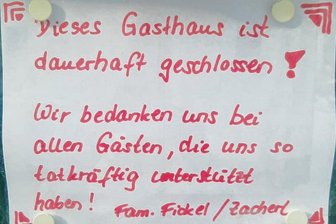 Dieses Gasthaus ist
dauerhaft geschlossen !
Wir bedanken uns bei
allen Gästen, die uns so
tatkräftig unterstützt
haben! Fam. Fickel / Zacherl